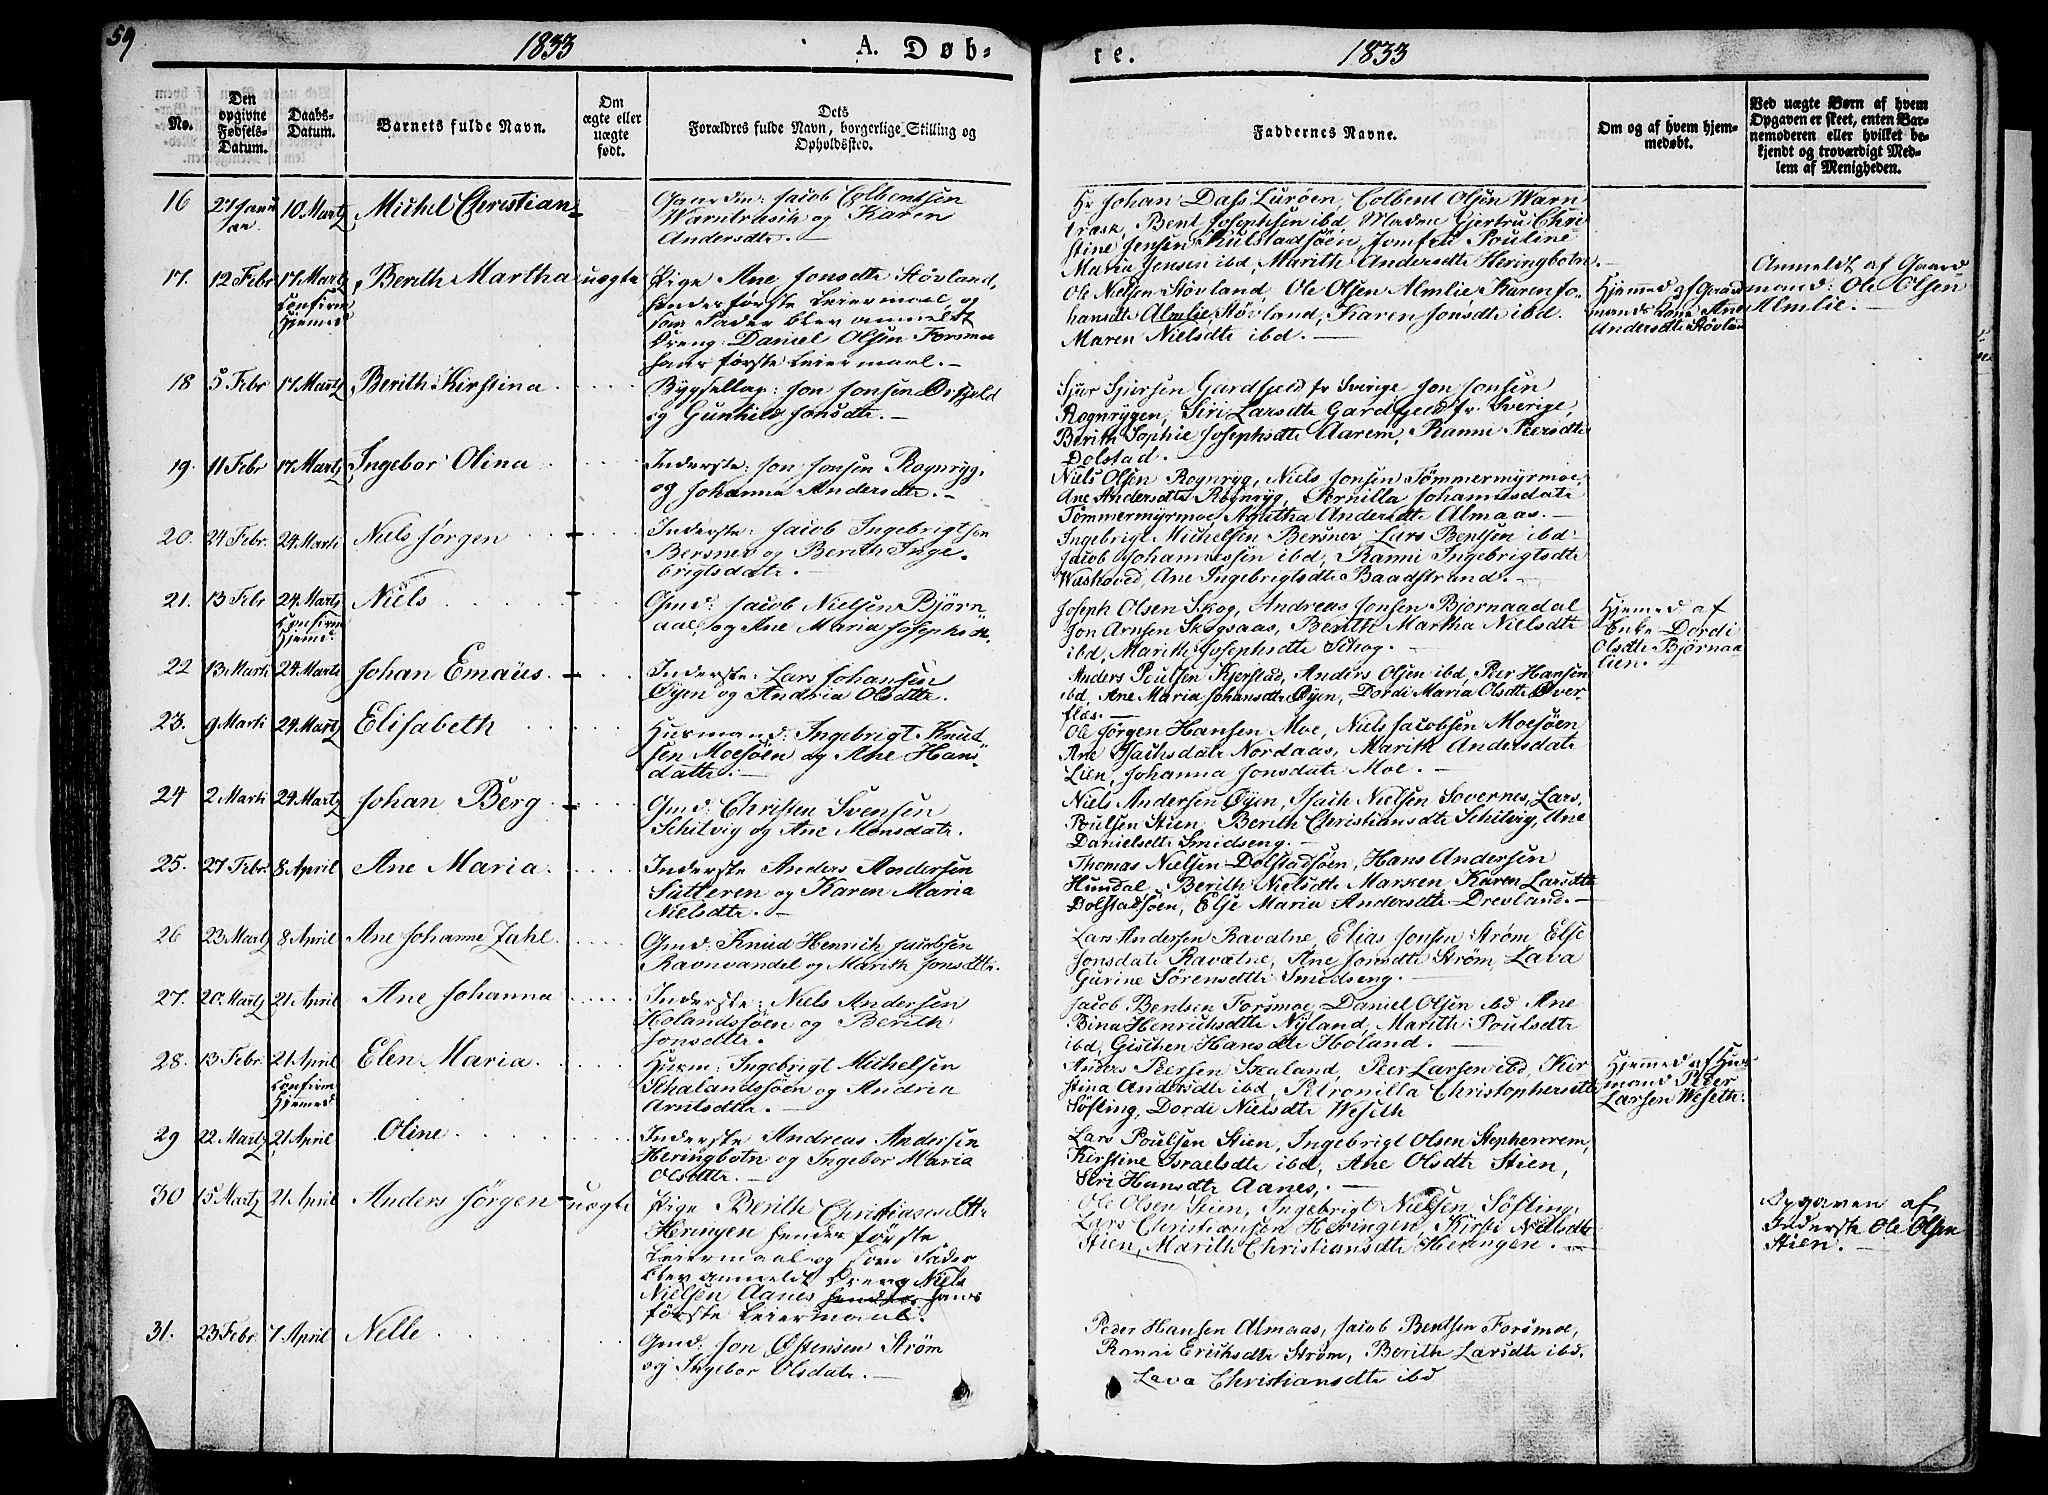 59
1833
A. Døb-
re.
1833
No.
Den
opgivne
Fødsels-
Datum.
Daabs-
Datum.
Barnets fulde Navn.
Om
ægte eller
uægte
født.
Dets
Forældres fulde Navn, borgerlige Stilling og
Opholdssted.
Faddernes Navne.
Om og af hvem hjem-
medøbt.
Ved uægte Børn af hvem
Opgaven er skeet, enten Bar-
nemoderen eller hvilket be-
kjendt og troværdigt Med-
lem af Menigheden.
16
27 Janu
10 Martz
Michel Christian
Gaardm: Jacob Colbentsen
Warntræsk og Karen
Andersdtr. -
Hr Johan Dass Lurøen, Colbent Olsen Warn
træsk, Bent Josephsen ibd, Madm Gjertru Chri
stine Jensen Kulstadsøen, Jomfru Pouline
Maria Jensen ibd, Marith Andersdtr Heringbotn. -
17.
12 Febr
17 Martz
Confirm
Hjemed
Berith Martha
uægte
Pige Ane Jonsdtr Støvland,
hendes første Leiermaal og
som Fader blev anmeldt
Dreng: Daniel Olsen Forsmo
hans første Leiermaal. -
Ole Nielsen Støvland, Ole Olsen Almlie, Karen Jo-
hansdtr Almlie, Støvland, Karen Jonsdtr ibd.
Maren Nielsdtr ibd. -
Hjemed af Gaard
mands Kone Ane
Andersdtr Støvlan
Anmeldt af Gaard
mand: Ole Olsen
Almlie. -
18
5 Febr
17 Martz
Berith Kirstina
Bygsellap: Jon Jonsen Ørfjeld
og Gunhild Jonsdtr. -
Sjur Sjursen Gardfjeld fr Sverige, Jon Jonsen
Rognrygen, Siri Larsdtr Gardfjeld fr. Sverige,
Berith Sophie Josephsdtr Aarem, Ranni Peersdtr
Dolstad. -
19.
11 Febr
17 Martz
Ingebor Olina
Inderste: Jon Jonsen Rognryg,
og Johanna Andersdtr. -
Niels Olsen Rognryg, Niels Jonsen Tømmermyrmoe,
Ane Andersdtr Rognryg, Pernilla Johannesdatr
Tømmermyrmoe, Agitha Andersdtr Almaas. -
20.
24 Febr.
24 Marti
Niels Jørgen
Inderste: Jacob Ingebrigtsen
Bersnes og Berith Inge-
brigtsdatr. -
Ingebrigt Michelsen Bersnes, Lars Bentsen ibd
Jacob Johannessen ibd, Ranni Ingebrigtsdtr
Waskoved, Ane Ingebrigtsdtr Baadstrand. -
21.
13 Febr
24 Marts
Confirm
Hjemd
Niels
Gmd: Jacob Nielsen Bjørn
aal, og Ane Maria Josephsdtr.
Joseph Olsen Skog, Andreas Jonsen Bjørnaadal
Jon Arnsen Skogsaas, Berith Martha Nielsdtr
ibd, Marith Josephsdtr Skog. -
Hjemed af
Enke Dordi
Olsdtr Bjørnaa-
lien. -
22
13 Marti
24 Marts
Johan Emaüs
Inderste: Lars Johansen
Øyen og Andria Olsdtr.
Anders Poulsen Kjerstad, Anders Olsen ibd, Peer Hansen
ibd, Ane Maria Johansdtr Øyen, Dordi Maria Olsdtr Øver
flas. -
23.
9 Marti
24 Martz
Elisabeth
Husmand: Ingebrigt Knud
sen Moesøen og Ane Hans
datter. -
Ole Jørgen Hansen Moe, Niels Jacobsen Moesøen
Ane Isachsdatr Nordaas, Marith Andersdatr
Lien, Johanna Jonsdatr Moe. -
24
2 Marti
24 Martz
Johan Berg
Gmd: Christen Svensen
Schilvig og Ane Monsdatr.
Niels Andersen Øyen, Isach Nielsen Sovernes, Lars
Poulsen Stien, Berith Christiansdtr Schilvig, Ane
Danielsdtr Smidseng. -
25.
27 Febr.
8 April
Ane Maria
Inderste Anders Andersen
Sætteren og Karen Maria
Nielsdtr. -
Thomas Nielsen Dolstadsøen, Hans Andersen
Hundal, Berith Nielsdtr Marken, Karen Larsdtr
Dolstadsøen, Else Maria Andersdtr Drevland. -
26
23 Martz
8 April
Ane Johanne Zahl
Gmd: Knud Henrich Jacobsen
Ravnvandel og Marith Jonsdtr.
Lars Andersen Ravatne, Elias Jonsen Strøm, Else
Jonsdatr Ravatne, Ane Jonsdtr Strøm, Lava
Gurine Sørensdtr Smidseng. -
27.
20. Martz
21 April
Ane Johanna
Inderste: Niels Andersen
Holandssøen og Berith
Jonsdtr.
Jacob Bentsen Forsmoe, Daniel Olsen ibd Ane
Bina Henrichsdtr Nyland, Marith Poulsdtr
ibd, Gischen Hansdtr Høland. -
28.
13 Febr
21 April
Confirm
Hjemed
Elen Maria
Husm: Ingebrigt Michelsen
Schalandssøen og Andria
Arntsdtr. -
Anders Peersen Skaland, Peer Larsen ibd, Kir
stina Andersdtr ibd, Petronilla Christophersdtr
Søfting, Dordi Nielsdtr Weseth
Hjemmed af Hus
mand Peder
Larsen Weseth.
29
22 Martz
21 April
Oline
Inderste Andreas Andersen
Heringbotn og Ingebor Maria
Olsdtr. -
Lars Poulsen Stien, Ingebrigt Olsen Stephenrem,
Kirstine Israelsdtr ibd, Ane Olsdtr Stien,
Siri Hansdtr Aanes. -
30
15 Martz
21. April
Anders Jørgen
uægte
Pige Berith Christiansdtr
Heringen hendes første
Leiermaal og som Fader
blev anmeldt Dreng Niels
Nielsen Aanes hendes hans
første Leiermaal.
Ole Olsen Stien, Ingebrigt Nielsen Søfting,
Lars Christiansen Heringen, Kirsti Nielsdtr
Stien, Marith Christiansdtr Heringen. -
Opgaven af
Inderste Ole Olsen
Stien. -
31.
23 Febr.
7 April
Nelle
Gmd: Jon Østensen Strøm
og Ingebor Olsdatr. -
Peder Hansen Almaas, Jacob Bentsen Forsmoe,
Ranni Erichsdtr Strøm, Berith Larsdtr ibd.
Lava Christiansdtr ibd